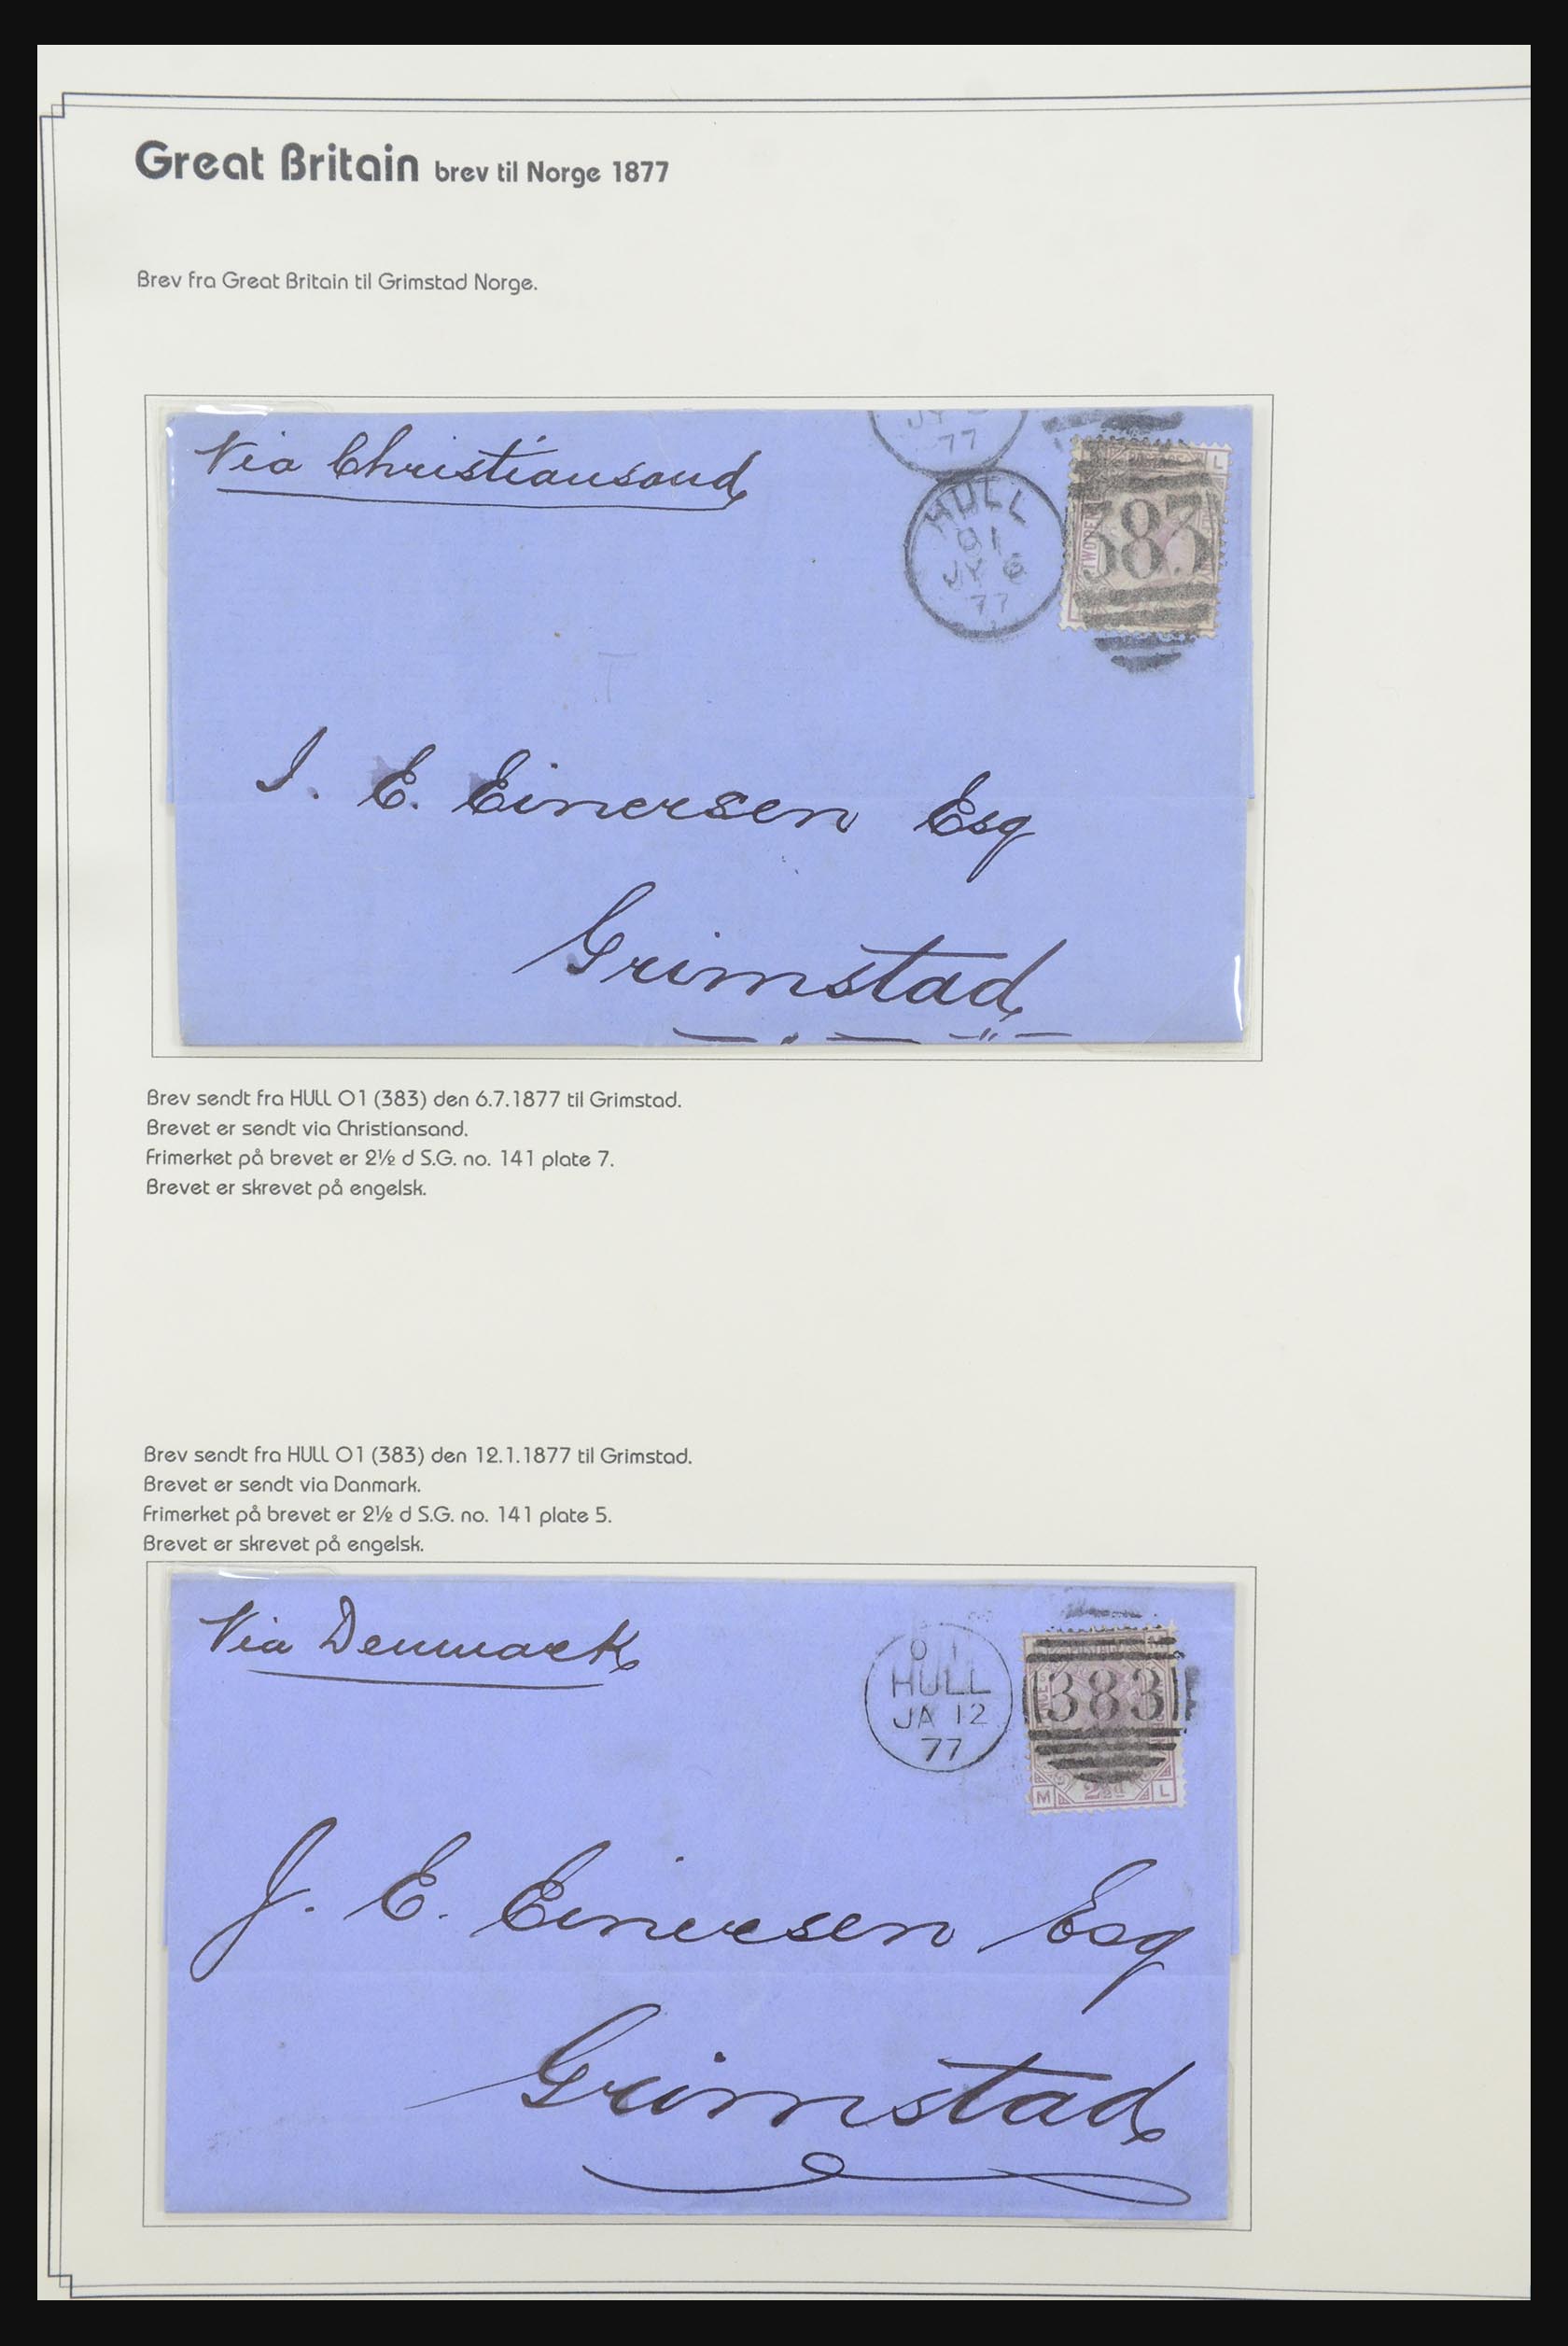 Great Britain brev til Norge 1877
Brev fra Great Britain til Grimstad Norge.
Via Christiansand
JY
77
HULL
O1
JY 6
77
L
383
I. E. Einersen Esq
Grimstad
Brev sendt fra HULL O1 (383) den 6.7.1877 til Grimstad.
Brevet er sendt via Christiansand.
Frimerket på brevet er 2½ d S.G. no. 141 plate 7.
Brevet er skrevet på engelsk.
Brev sendt fra HULL O1 (383) den 12.1.1877 til Grimstad.
Brevet er sendt via Danmark.
Frimerket på brevet er 2½ d S.G. no. 141 plate 5.
Brevet er skrevet på engelsk.
Via Denmark
O1
HULL
JA 12
77
383
M 2½d L
J. E. Einersen Esq
Grimstad